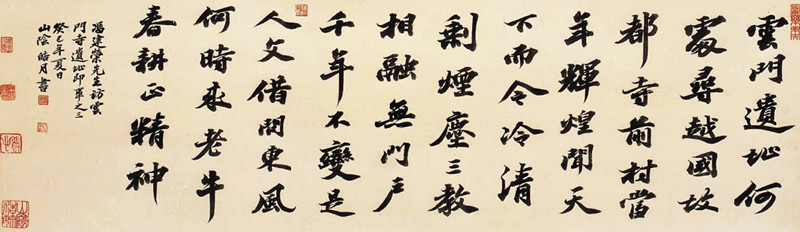 雲門遺址何
處尋越國故
都寺前村當
年輝煌聞天
下而今冷清
剩煙塵三教
相融無門戶
千年不變是
人文借問東風
何時來老牛
春耕正精神
馮建榮先生訪雲
門寺遺址即事之三
癸巳年夏日
山陰皓月書